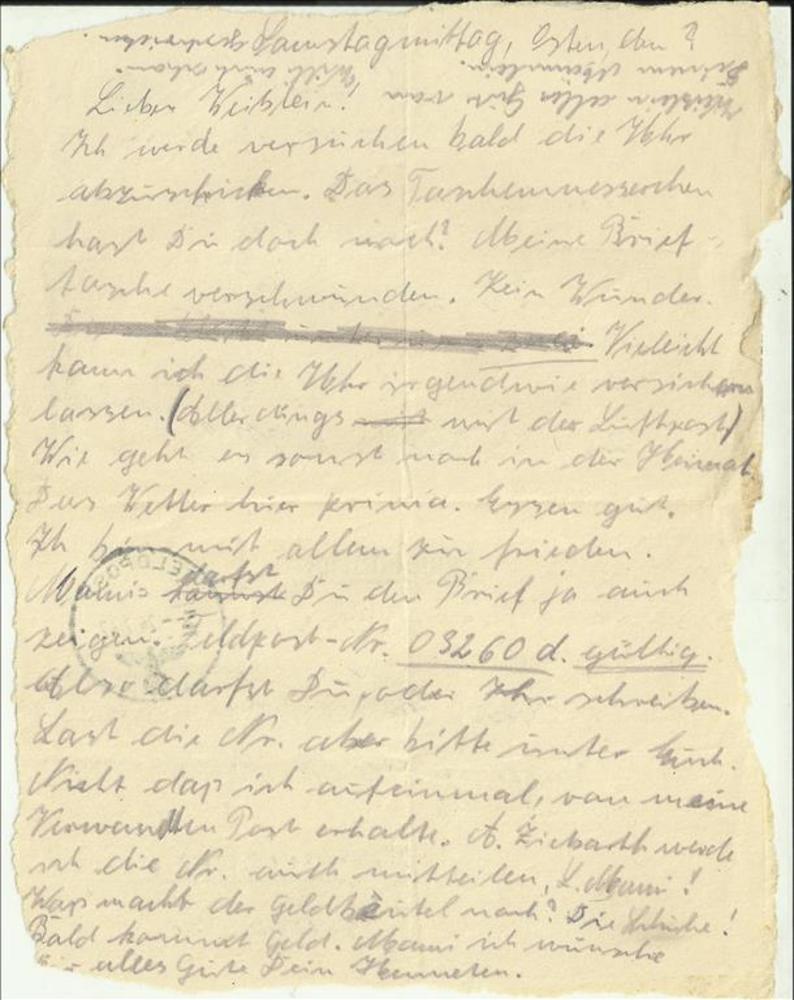 Samstagmittag, Osten, den ?
Lieber Weiblein!
Ich werde versuchen bald die Uhr
abzuschicken. Das Taschenmesserchen
hast Du doch noch? Meine Brief-
tasche verschwunden. Kein Wunder.
Vieleicht
kann ich die Uhr irgendwie versichern
lassen. (Allerdings mit der Luftpost)
Wie geht es sonst noch in der Heimat.
Das Wetter hier prima. Essen gut.
Ich bin mit allem zu frieden.
darfst
Du den Brief ja auch
zeigen. Feldpost-Nr. 03260 d. gültig.
Also darfst Du, oder Ihr schreiben.
Last die Nr. aber bitte unter Euch.
Nicht daß ich aufeinmal, von meine
Verwandten Post erhalte. A. Ziebarth werde
ich die Nr. auch mitteilen, L. Mami!
Was macht der Geldbeutel noch? Die Schuhe!
Bald kommt Geld. Mami ich wünsche
alles Gute Dein